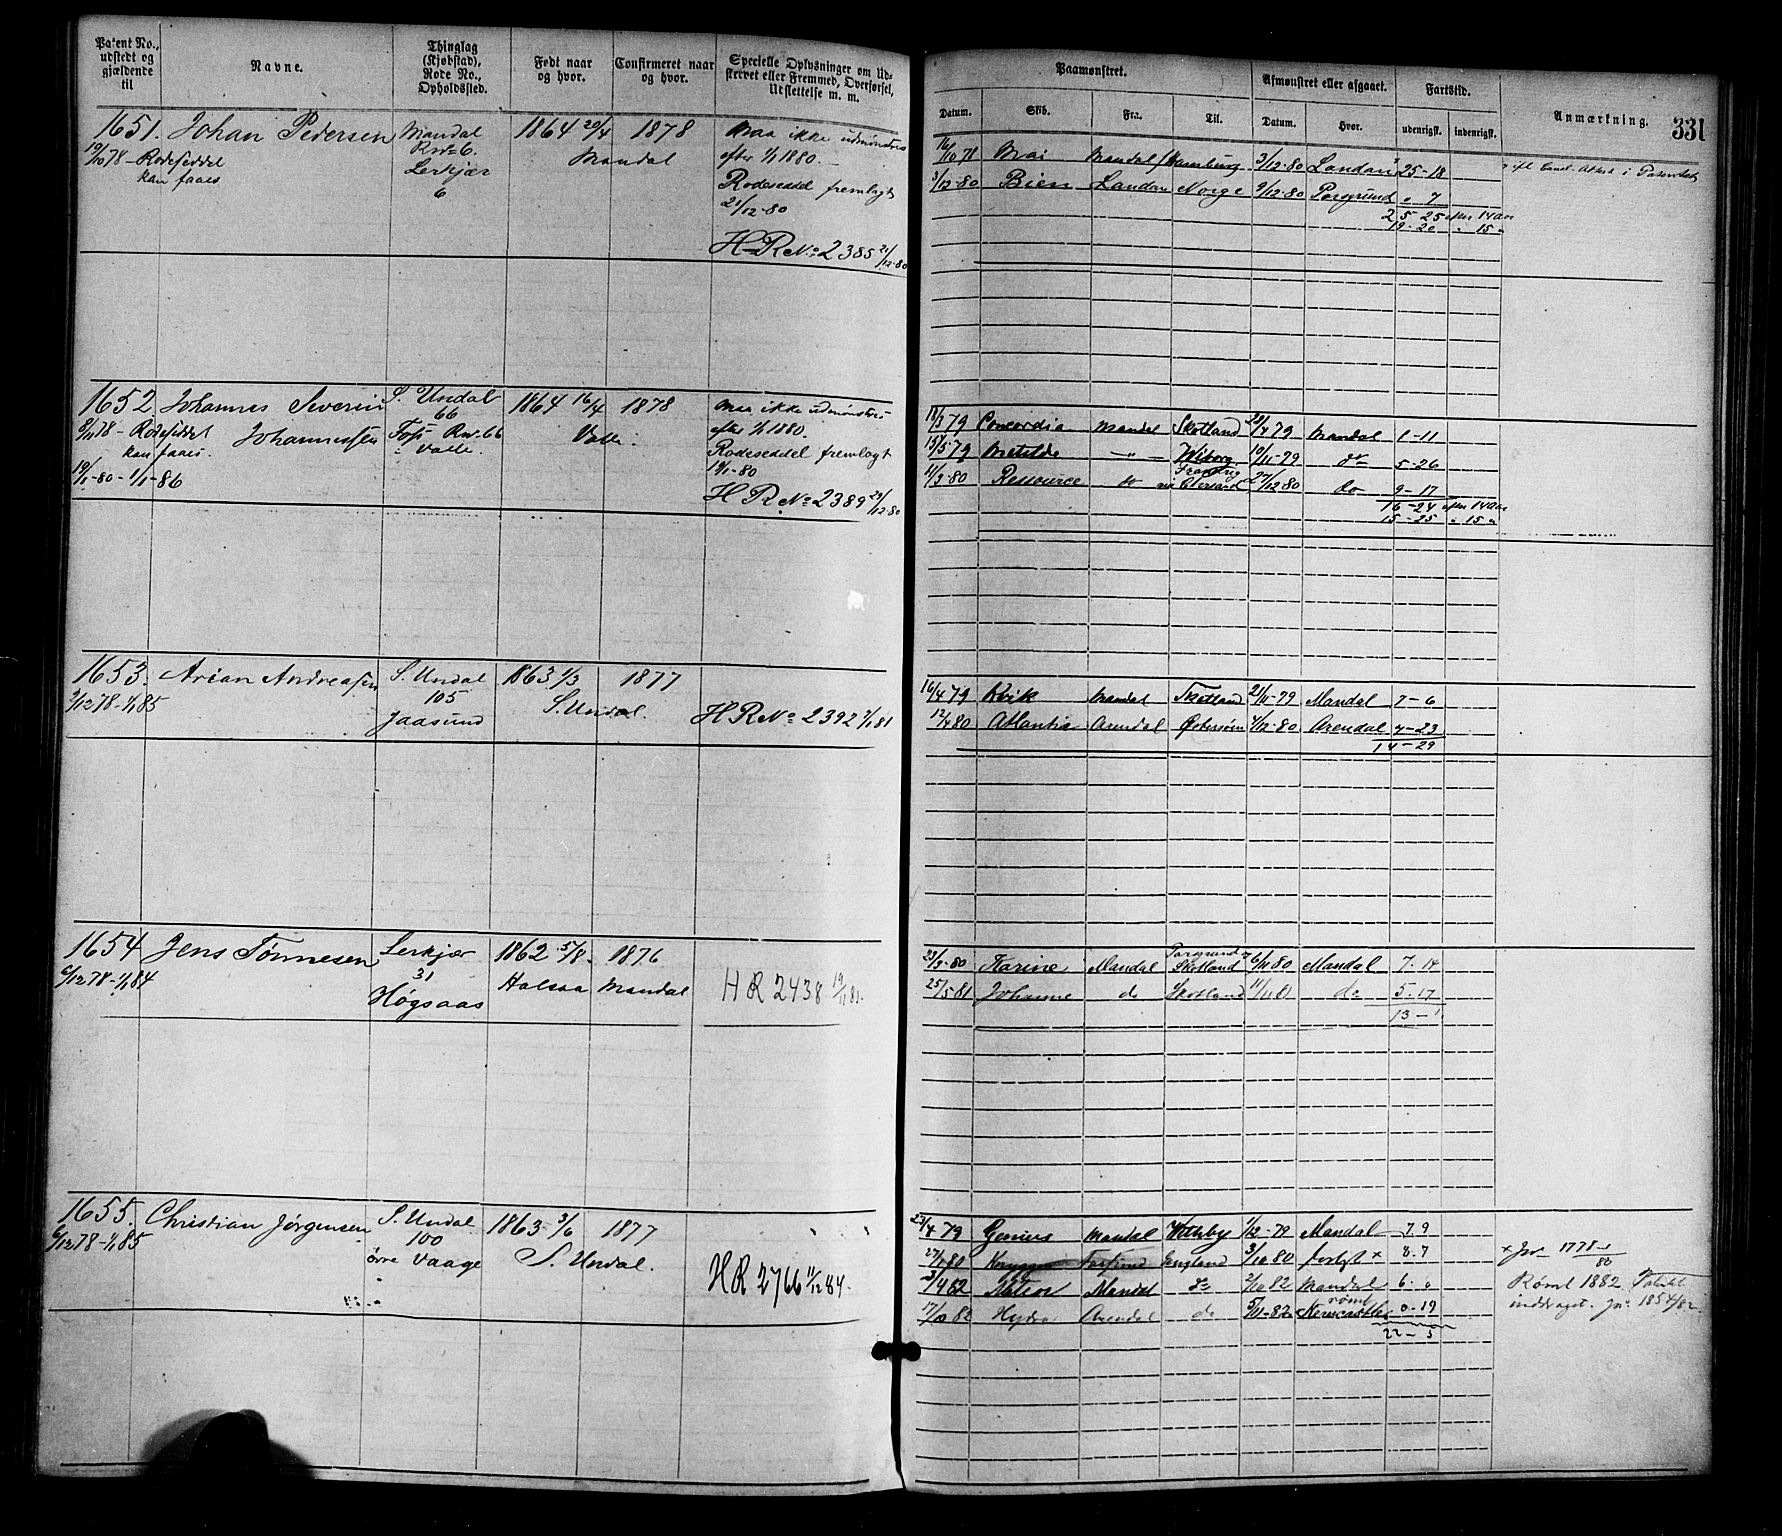 Patent No., udstedt og gjældende til
Navne.
Thinglag (Kjøbstad), Rode No., Opholdssted.
Født naar og hvor.
Confirmeret naar og hvor.
Specielle Oplysninger om Udskrevet eller Fremmed, Overførsel, Udslettelse m. m.
Paamønstret.
Afmønstret eller afgaaet.
Fartstid.
Anmærkning.
331
Datum. Skib. Fra. Til. Datum. Hvor. udenrigsk. indenrigsk.
1651. Johan Pedersen Mandal 1864 20/4 1878 Maa ikke udmønstres
19/10 78 - Rodeseddel Rno 6. Mandal efter 1/1 1880.
kan faaes Lerkjær Rodeseddel fremlagt
6 21/12-80
H R No 2385 21/12-80
16/10 78 Mai Mandal Hamburg 3/12-80 Landan 25-18
3/12-80 Bien Landan Norge 9/12-80 Porsgrund " 7
25-25 efter 14 Aar
19-20 " 15 "
1652. Johannes Severin S. Undal 1864 16/4 1878 Maa ikke udmønstres
8/11 78 - Rodeseddel Johannessen 66 Valle. efter 1/1 1880.
kan faaes. Foss Rno 66 Rodeseddel fremlagt
19/1-80 - 1/1-86 Valle. 19/1-80
H R No 2389 29/12-80
18/3 79 Concordia Mandal Skotland 23/4 79 Mandal 1-11
15/5 79 Metilde - " - Wiborg 10/11-79 do 5-26
11/3-80 Ressource do 27/12-80 do 9-17
16-24 efter 14 Aar
15-25 " 15 "
1653. Arian Andreasen S. Undal 1863 1/3 1877
5/12 78 - 1/1 85 105 S. Undal.
Jaasund H R No 2392 7/1 81
16/4 79 Kvik Mandal Skotland 21/11-79 Mandal 7-6
12/4 80 Atlantic Arendal Østersøen 4/12-80 Arendal 7-23
14-29
1654 Jens Tønnesen Lerkjær 1862 5/8. 1876
6/12 78 - 1/1 84 31 Halsaa Mandal H R 2438 19/11 81.
Høgsaas
23/3-80 Karine Mandal Porsgrund Skotland 6/11 80 Mandal 7-14
25/5 81 Johanne do Skotland 11/11 81 do 5-17
13-1
1655. Christian Jørgensen S. Undal 1863 3/6 1877
6/12 78 - 1/1 85 100 S. Undal.
øvre Vaage H R 2766 11/12 84.
23/4 79 Genius Mandal Withby 1/12-79 Mandal 7.9
27/1 80 Farsund England 3/10 80 forlyt x 8.7 x Jno 1778/80
3/4 82 Mandal do 2/10 82 Mandal 6.0 Rømt 1882
17/10 82 Hydra Arendal do 5/11-82 rømt Newcastle 0-19 inddraget. Jno 1854/82
22-5